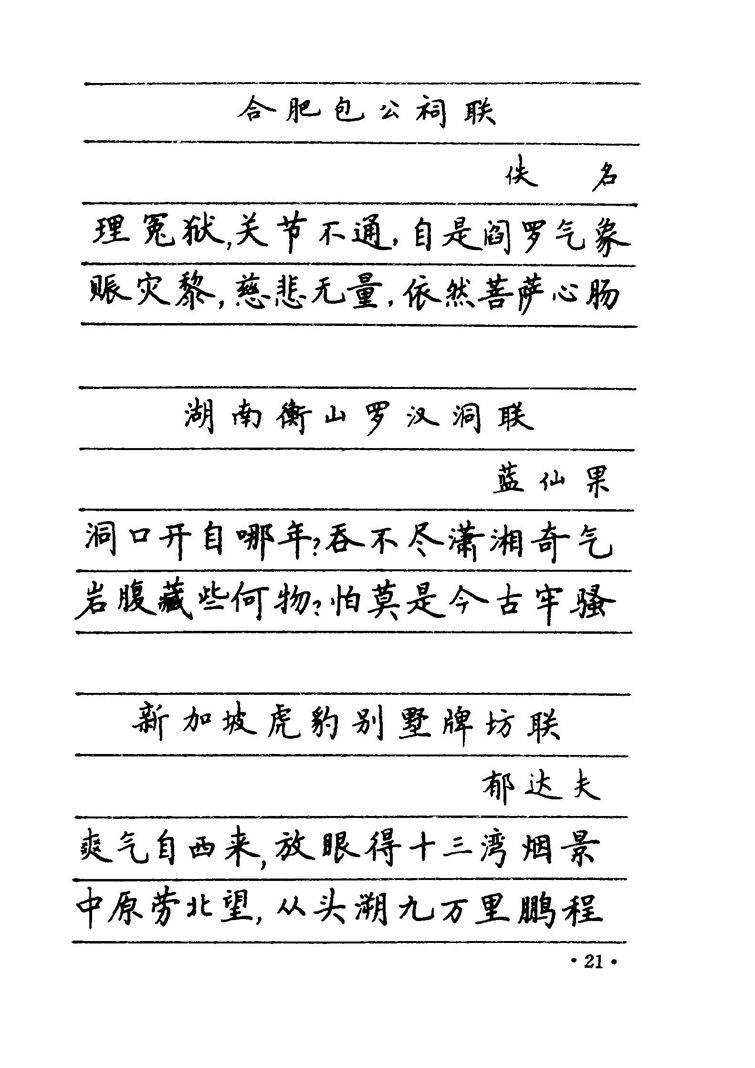 合肥包公祠联
佚 名
理冤狱,关节不通,自是阎罗气象
赈灾黎,慈悲无量,依然菩萨心肠
湖南衡山罗汉洞联
蓝仙果
洞口开自哪年?吞不尽潇湘奇气
岩腹藏些何物?怕莫是今古牢骚
新加坡虎豹别墅牌坊联
郁达夫
爽气自西来,放眼得十三湾烟景
中原劳北望,从头溯九万里鹏程
·21·